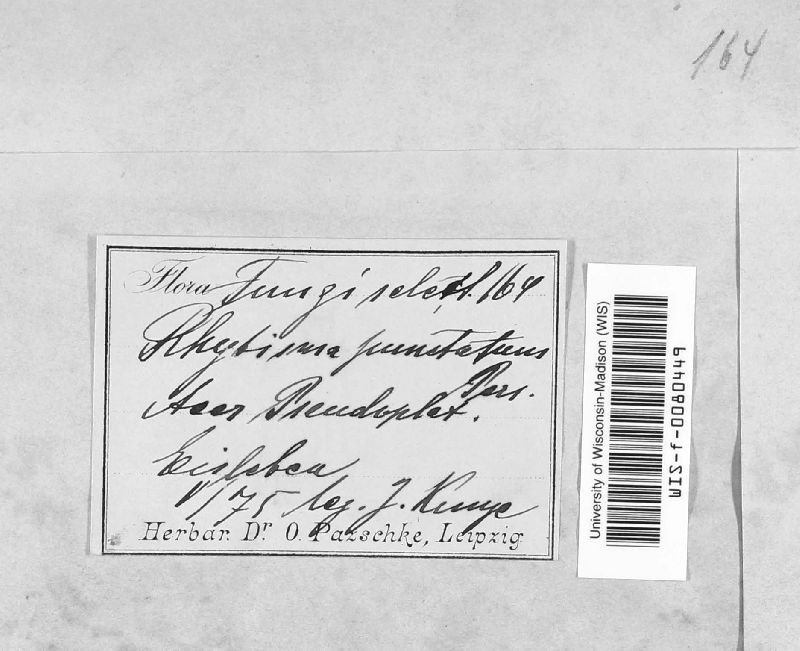 164
Flora Fungi select. 164
Rhytisma punctatum
Pers.
Acer Pseudoplat.
Eisleben
V/75 leg. J. Kunze
Herbar. Dr. O. Pazschke, Leipzig.
University of Wisconsin-Madison (WIS)
WIS-f-0080449